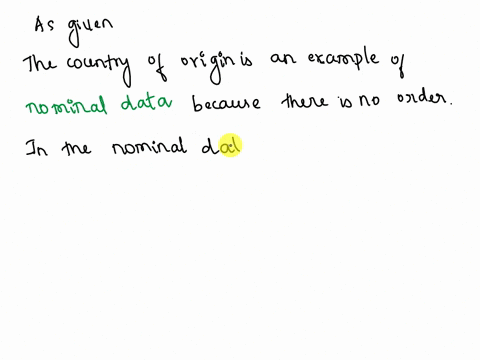 As given
The country of origin is an example of
nominal data because there is no order.
In the nominal dat